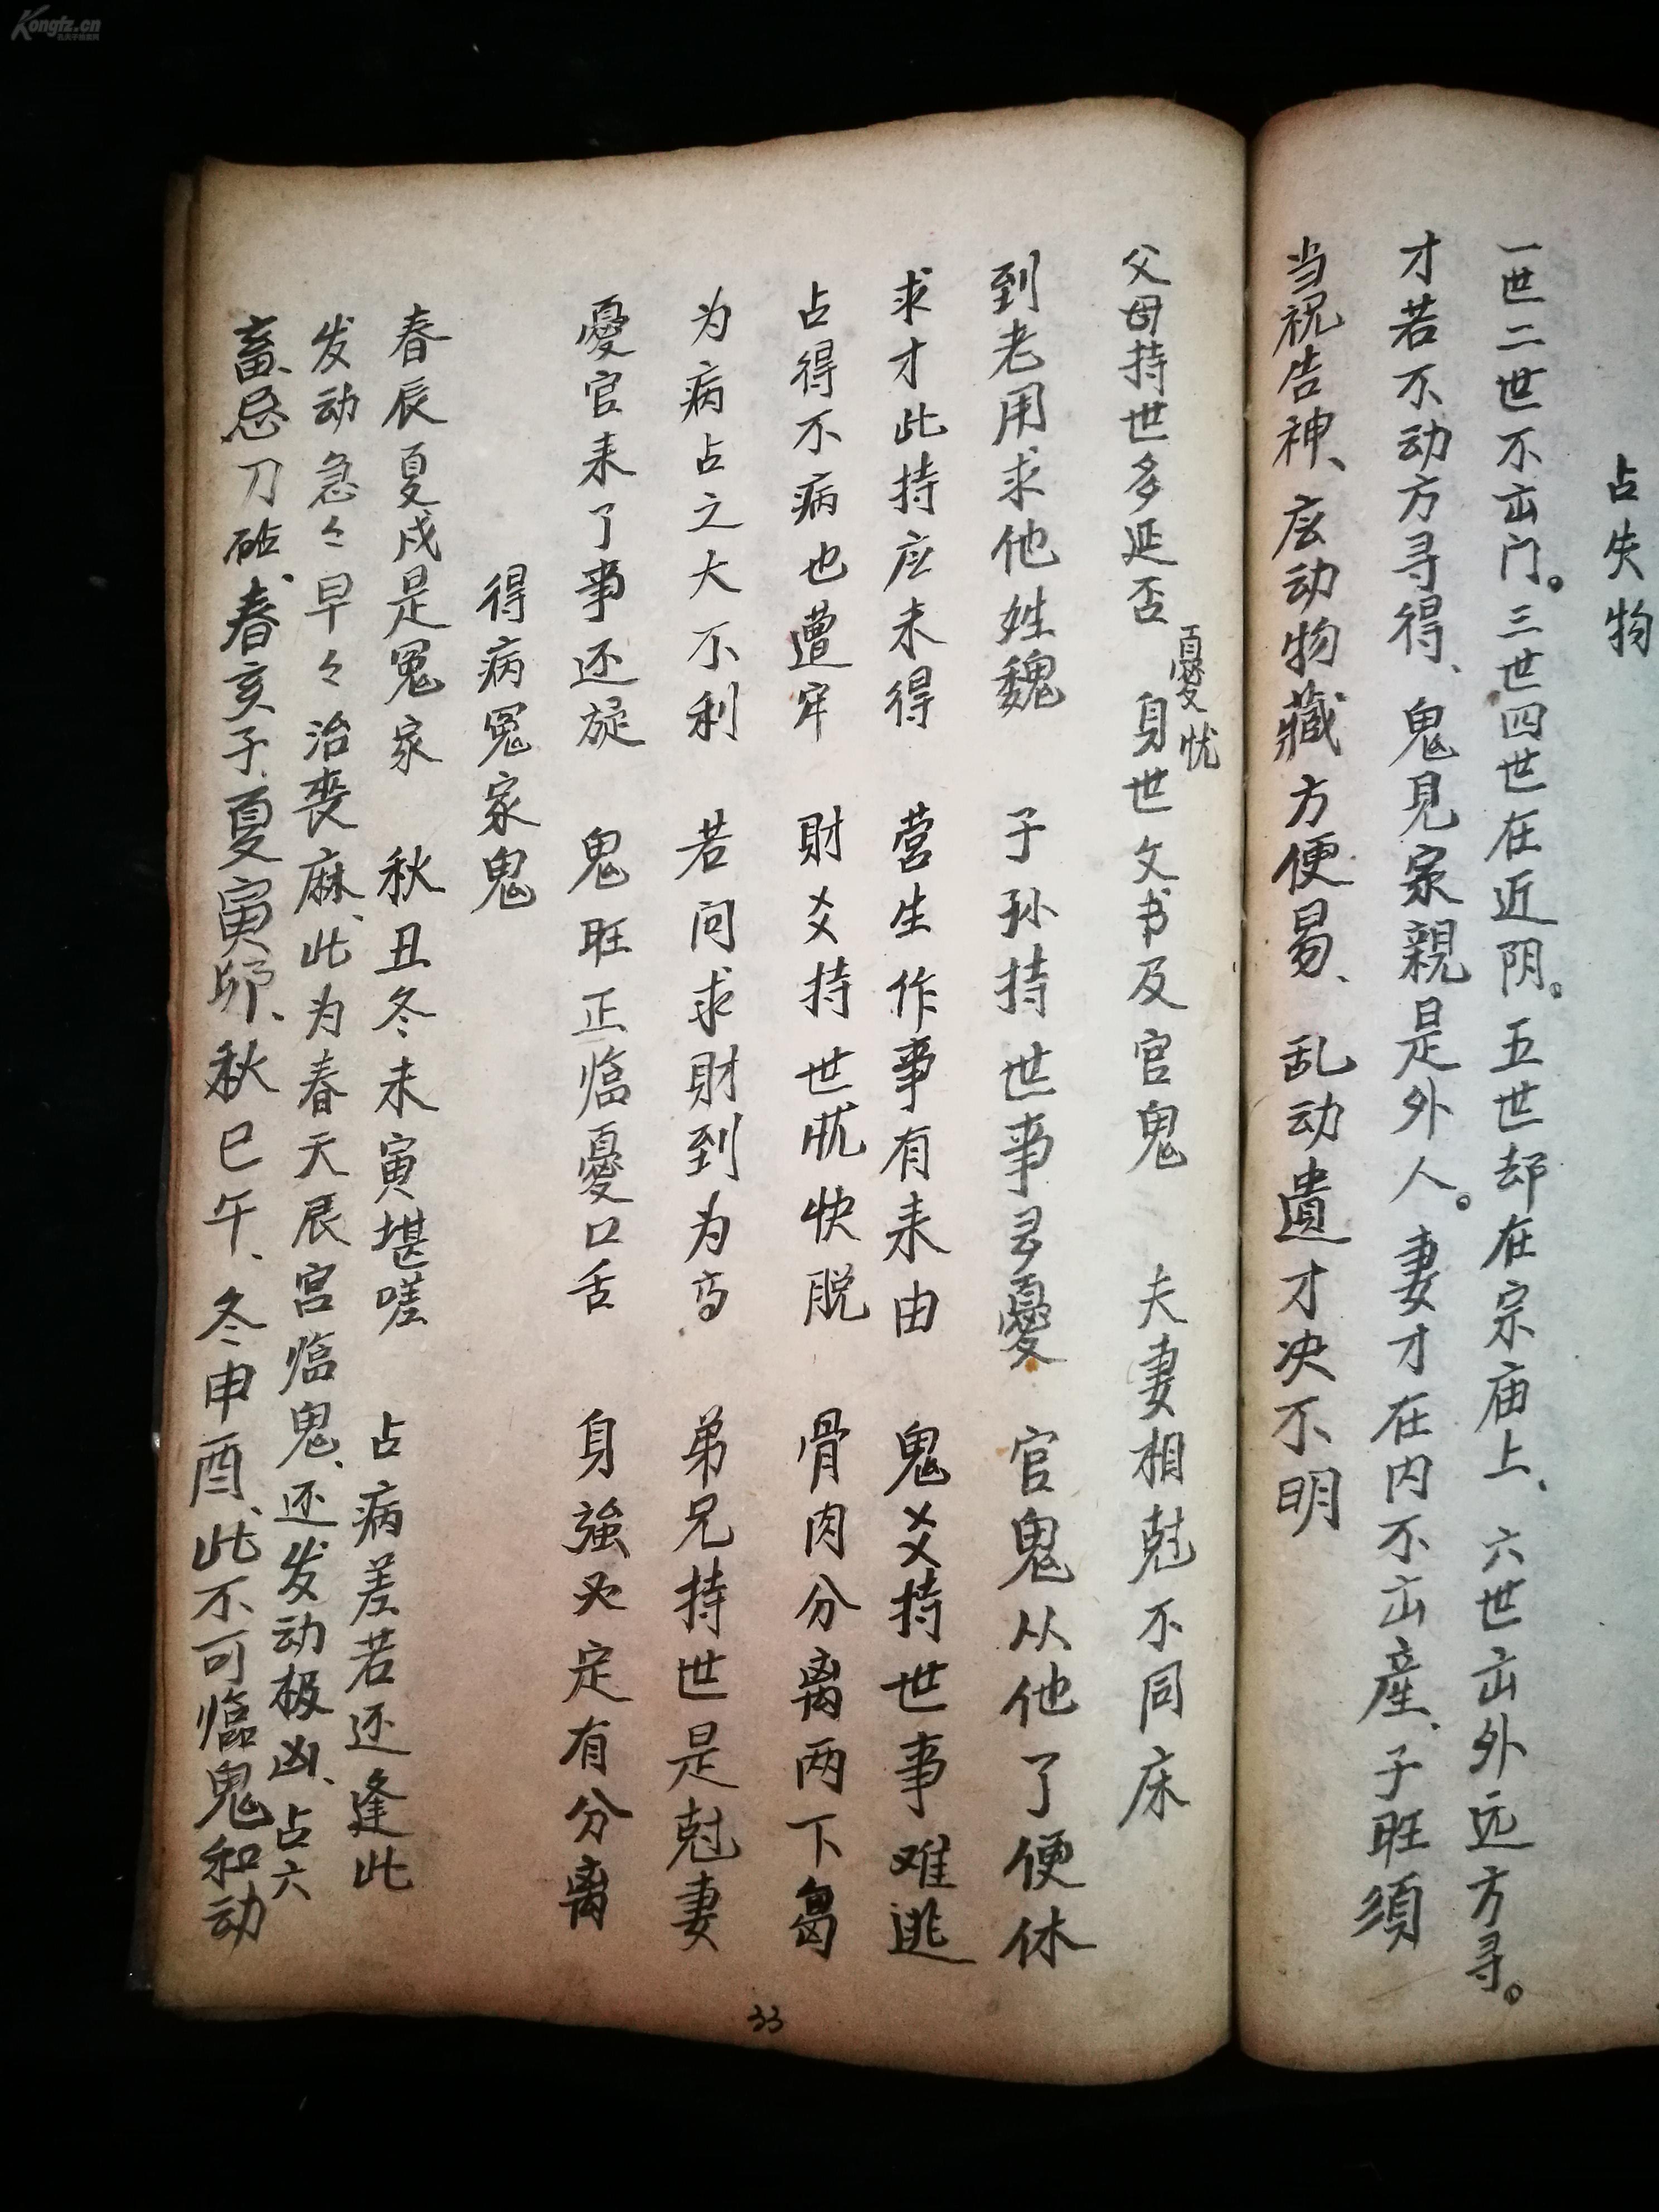 占失物
一世二世不出门。三世四世在近阴。五世却在宗庙上、六世出外远方寻。
才若不动方寻得、鬼见家親是外人。妻才在内不出産、子旺須
当祝告神、应动物藏方便易、乱动遺才决不明
父母持世多延否 身世文书及官鬼 夫妻相尅不同床
憂忧
到老用求他姓魏 子孙持世事多憂 官鬼从他了便休
求才此持应未得 营生作事有来由 鬼爻持世事难逃
占得不病也遭牢 財爻持世快脱 骨肉分离两下
为病占之大不利 若问求財到为 弟兄持世是尅妻
憂官来了事还旋 鬼旺正临憂口舌 身強必定有分离
得病冤家鬼
春辰夏戍是冤家 秋丑冬未寅堪嗟 占病差若还逢此
发动急々早々治喪麻、此为春天辰宫临鬼、还发动极凶、占六
畜忌刀砧、春亥子、夏寅卯、秋巳午、冬申酉、此不可临鬼和动
33
Kongfz.cn